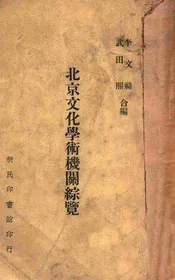 李文裿
武田熙 合編
北京文化學術機關綜覽
新民印書館印行